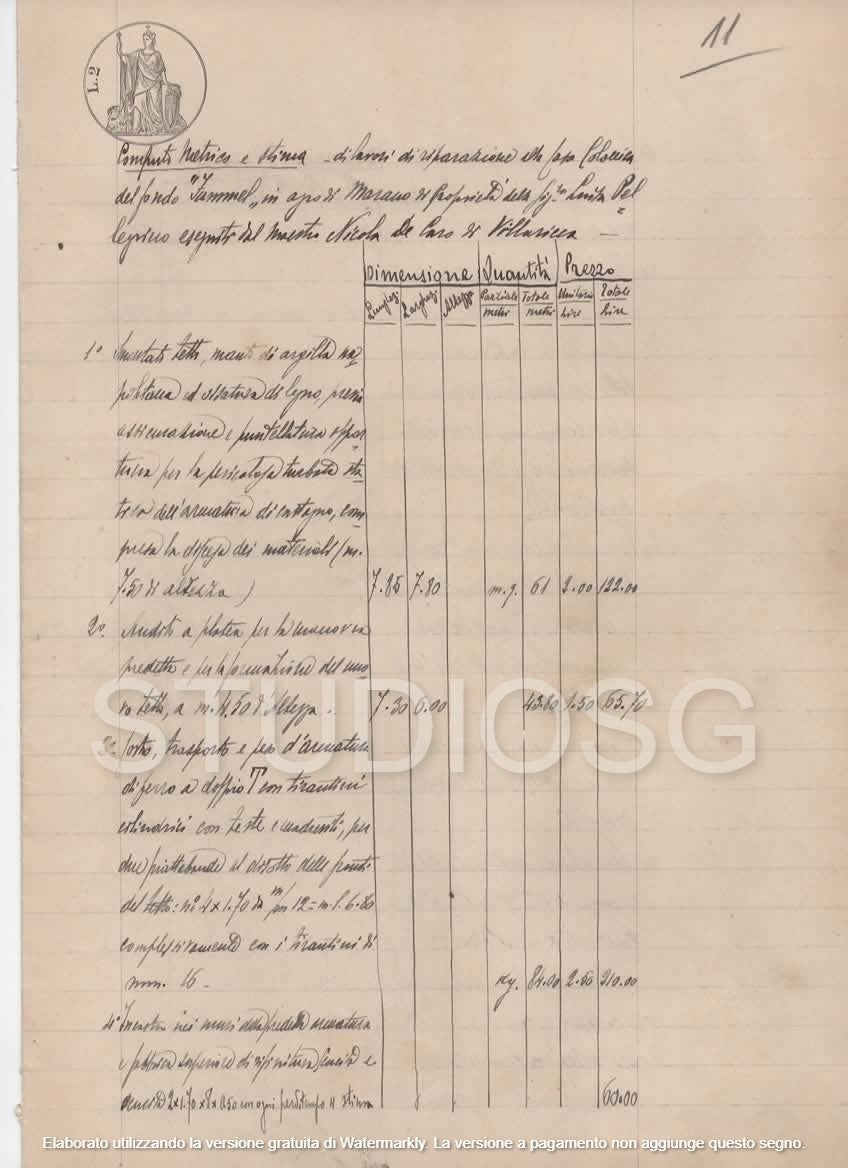 11
L.2
Computo Metrico e Stima - di lavori di riparazione alla Casa Colonica
del fondo "Jummel" in agro di Marano di proprietà della Sig.ra Luisa Pel=
legrino eseguiti dal Maestro Nicola De Caro di Villaricca —
Dimensione Quantità Prezzo
Lunghez. Larghez. Altezza Parziale Totale Unitario Totale
metri metri Lire Lire
1° Smontato tetto, manto di argilla na=
politana ed ossatura di legno, previa
assicurazione e puntellatura oppor=
tuna per la pericolosa turbata sta=
tica dell'armatura di castagno, com=
presa la discesa dei materiali (m.
7.50 di altezza) 7.85 7.80 m.q. 61 2.00 122.00
2° Andito a platea per la manovra
predetta e per la formazione del nuo=
vo tetto, a m. 4.50 d'altezza. 7.30 6.00 43.80 1.50 65.70
3° trasporto e peso d'armatura
di ferro a doppio T con tirantini
cilindrici con teste e per
due piattabande al disotto delle
del tetto: n° 4 x 1.70 da m/m 12 = m.l. 6.80
complessivamente con i tirantini di
mm. 16 - Kg. 84.00 2.50 210.00
4° nei muri della predetta armatura
e fabbrica superiore di rifinitura e
2 x 1.70 x 8 x 0.50 con ogni perditempo 60.00
STUDIOSG
Elaborato utilizzando la versione gratuita di Watermarkly. La versione a pagamento non aggiunge questo segno.